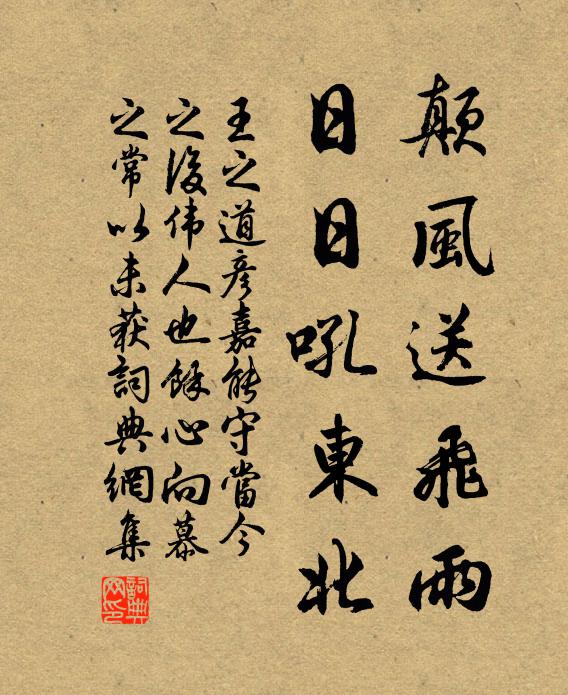 顛風送飛雨
日日吼東北
王之道彦嘉能守當今
之後伟人也餘心向慕
之常以未获詞典網集
詞典网印